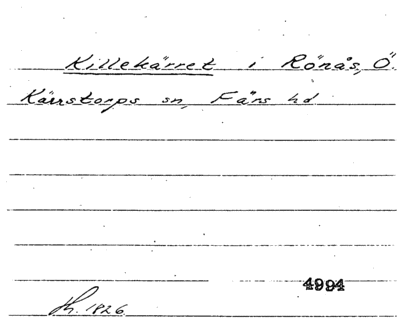 Killekärret i Rönås, Ö.
Kärrstorps sn, Färs hd
4994
1826